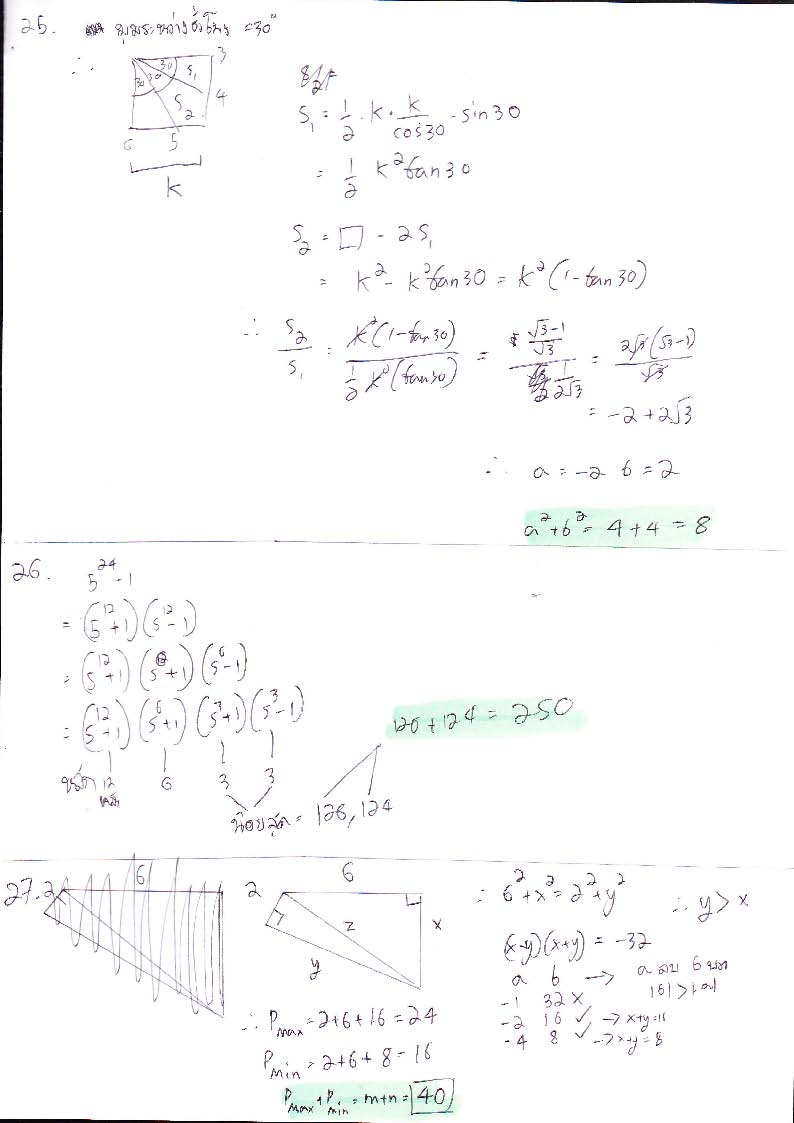 25. มุมระหว่างชั่วโมง = 30°
∴
30 30 30 S₁ S₂ 3 4 5 6
k
S₁ = 1/2 · k · k/cos30 · sin30
= 1/2 k² tan30
S₂ = □ - 2S₁
= k² - k² tan30 = k²(1 - tan30)
∴ S₂/S₁ = k²(1 - tan30) / 1/2 k²(tan30) = (√3-1)/√3 / 1/(2√3) = 2√3(√3-1)/√3
= -2 + 2√3
∴ a = -2 b = 2
a² + b² = 4 + 4 = 8
26. 5²⁴ - 1
= (5¹² + 1)(5¹² - 1)
= (5¹² + 1)(5⁶ + 1)(5⁶ - 1)
= (5¹² + 1)(5⁶ + 1)(5³ + 1)(5³ - 1)
12 6 3 3
หลัก
น้อยสุด = 126, 124
126 + 124 = 250
27. 2 6
2 6 x y z
∴ 6² + x² = 2² + y² ∴ y > x
(x-y)(x+y) = -32
a b → a ลบ b บวก
|b| > |a|
-1 32 ×
-2 16 ✓ → x+y=16
-4 8 ✓ → x+y=8
∴ Pmax = 2+6+16 = 24
Pmin = 2+6+8 = 16
Pmax + Pmin = m+n = 40